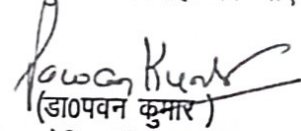 Pawan Kumar
(डा0पवन कुमार)